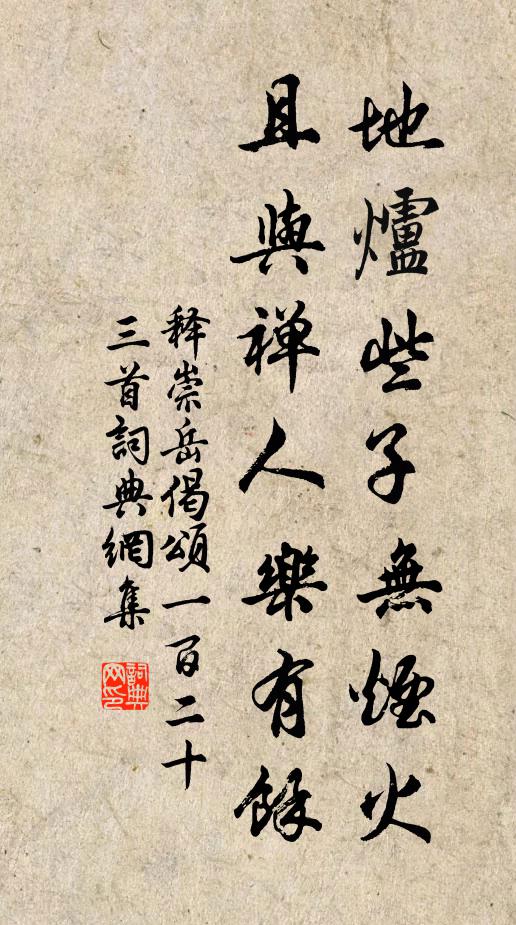 地爐些子無煙火
且與禪人樂有餘
释崇岳偈頌一百二十
三首詞典網集
詞典网印